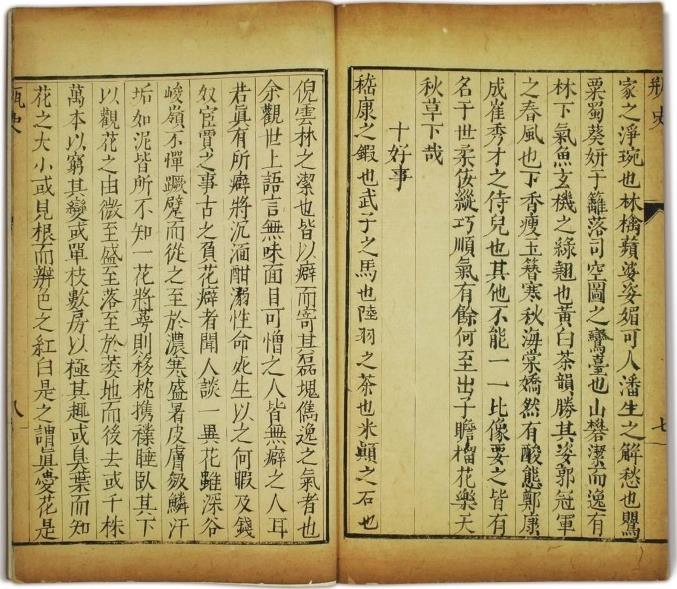 瓶史
七
家之淨琬也林檎蘋婆姿媚可人潘生之解愁也鸎
粟蜀葵妍于籬落司空圖之鸞臺也山礬潔而逸有
林下氣魚玄機之綠翹也黃白茶韻勝其姿郭冠軍
之春風也丁香瘦玉簪寒秋海棠嬌然有酸態鄭康
成崔秀才之侍兒也其他不能一一比像要之皆有
名于世柔佞纖巧順氣有餘何至出子瞻榴花樂天
秋草下哉
十好事
嵇康之鍛也武子之馬也陸羽之茶也米顛之石也
倪雲林之潔也皆以癖而寄其磊塊儁逸之氣者也
余觀世上語言無味面目可憎之人皆無癖之人耳
若真有所癖將沉湎酣溺性命死生以之何暇及錢
奴宦賈之事古之負花癖者聞人談一異花雖深谷
峻嶺不憚蹶躄而從之至於濃寒盛暑皮膚皴鱗汗
垢如泥皆所不知一花將萼則移枕携襆睡臥其下
以觀花之由微至盛至落至於萎地而後去或千株
萬本以窮其變或單枝數房以極其趣或臭葉而知
花之大小或見根而辨色之紅白是之謂眞愛花是
瓶史
八